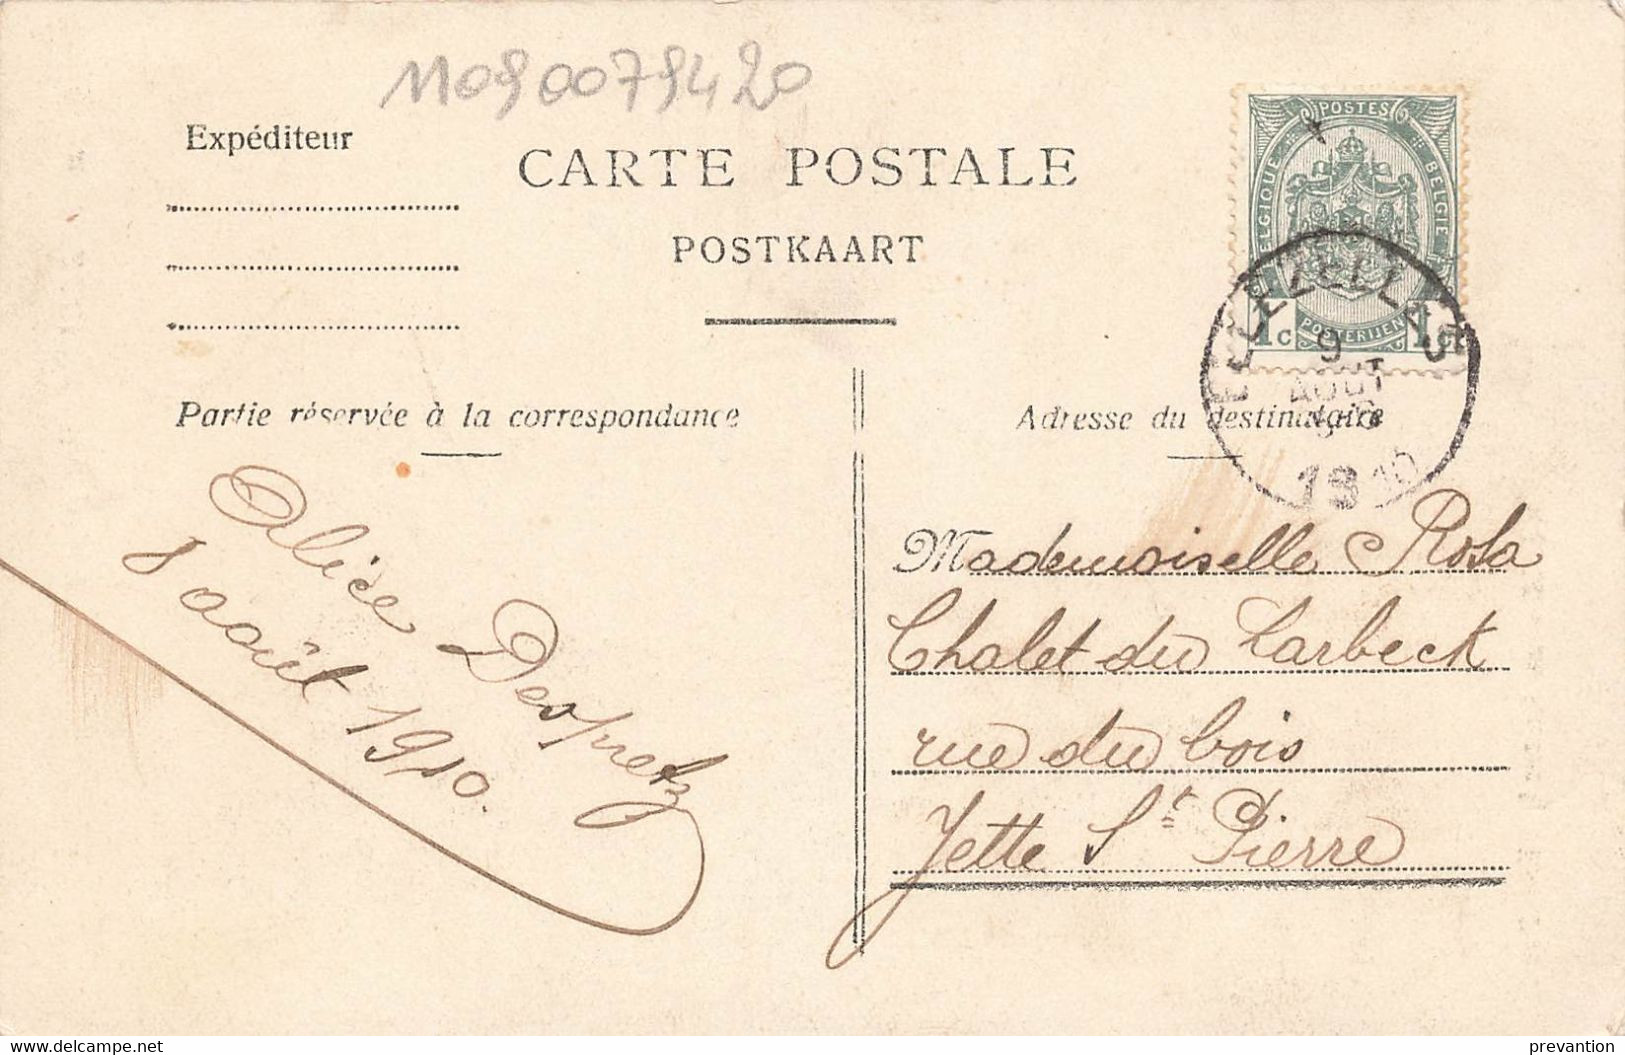 11090079420
Expéditeur
CARTE POSTALE
POSTKAART
POSTES
BELGIQUE
BELGIË
1c POSTERIJEN 1c
ELLEZELLES
9
AOUT
13
10
Partie réservée à la correspondance
Adresse du destinataire
Alice Despretz
8 août 1910.
Mademoiselle Rosa
Chalet du Larbeck
rue du bois
Jette St Pierre
www.delcampe.net
prevantion